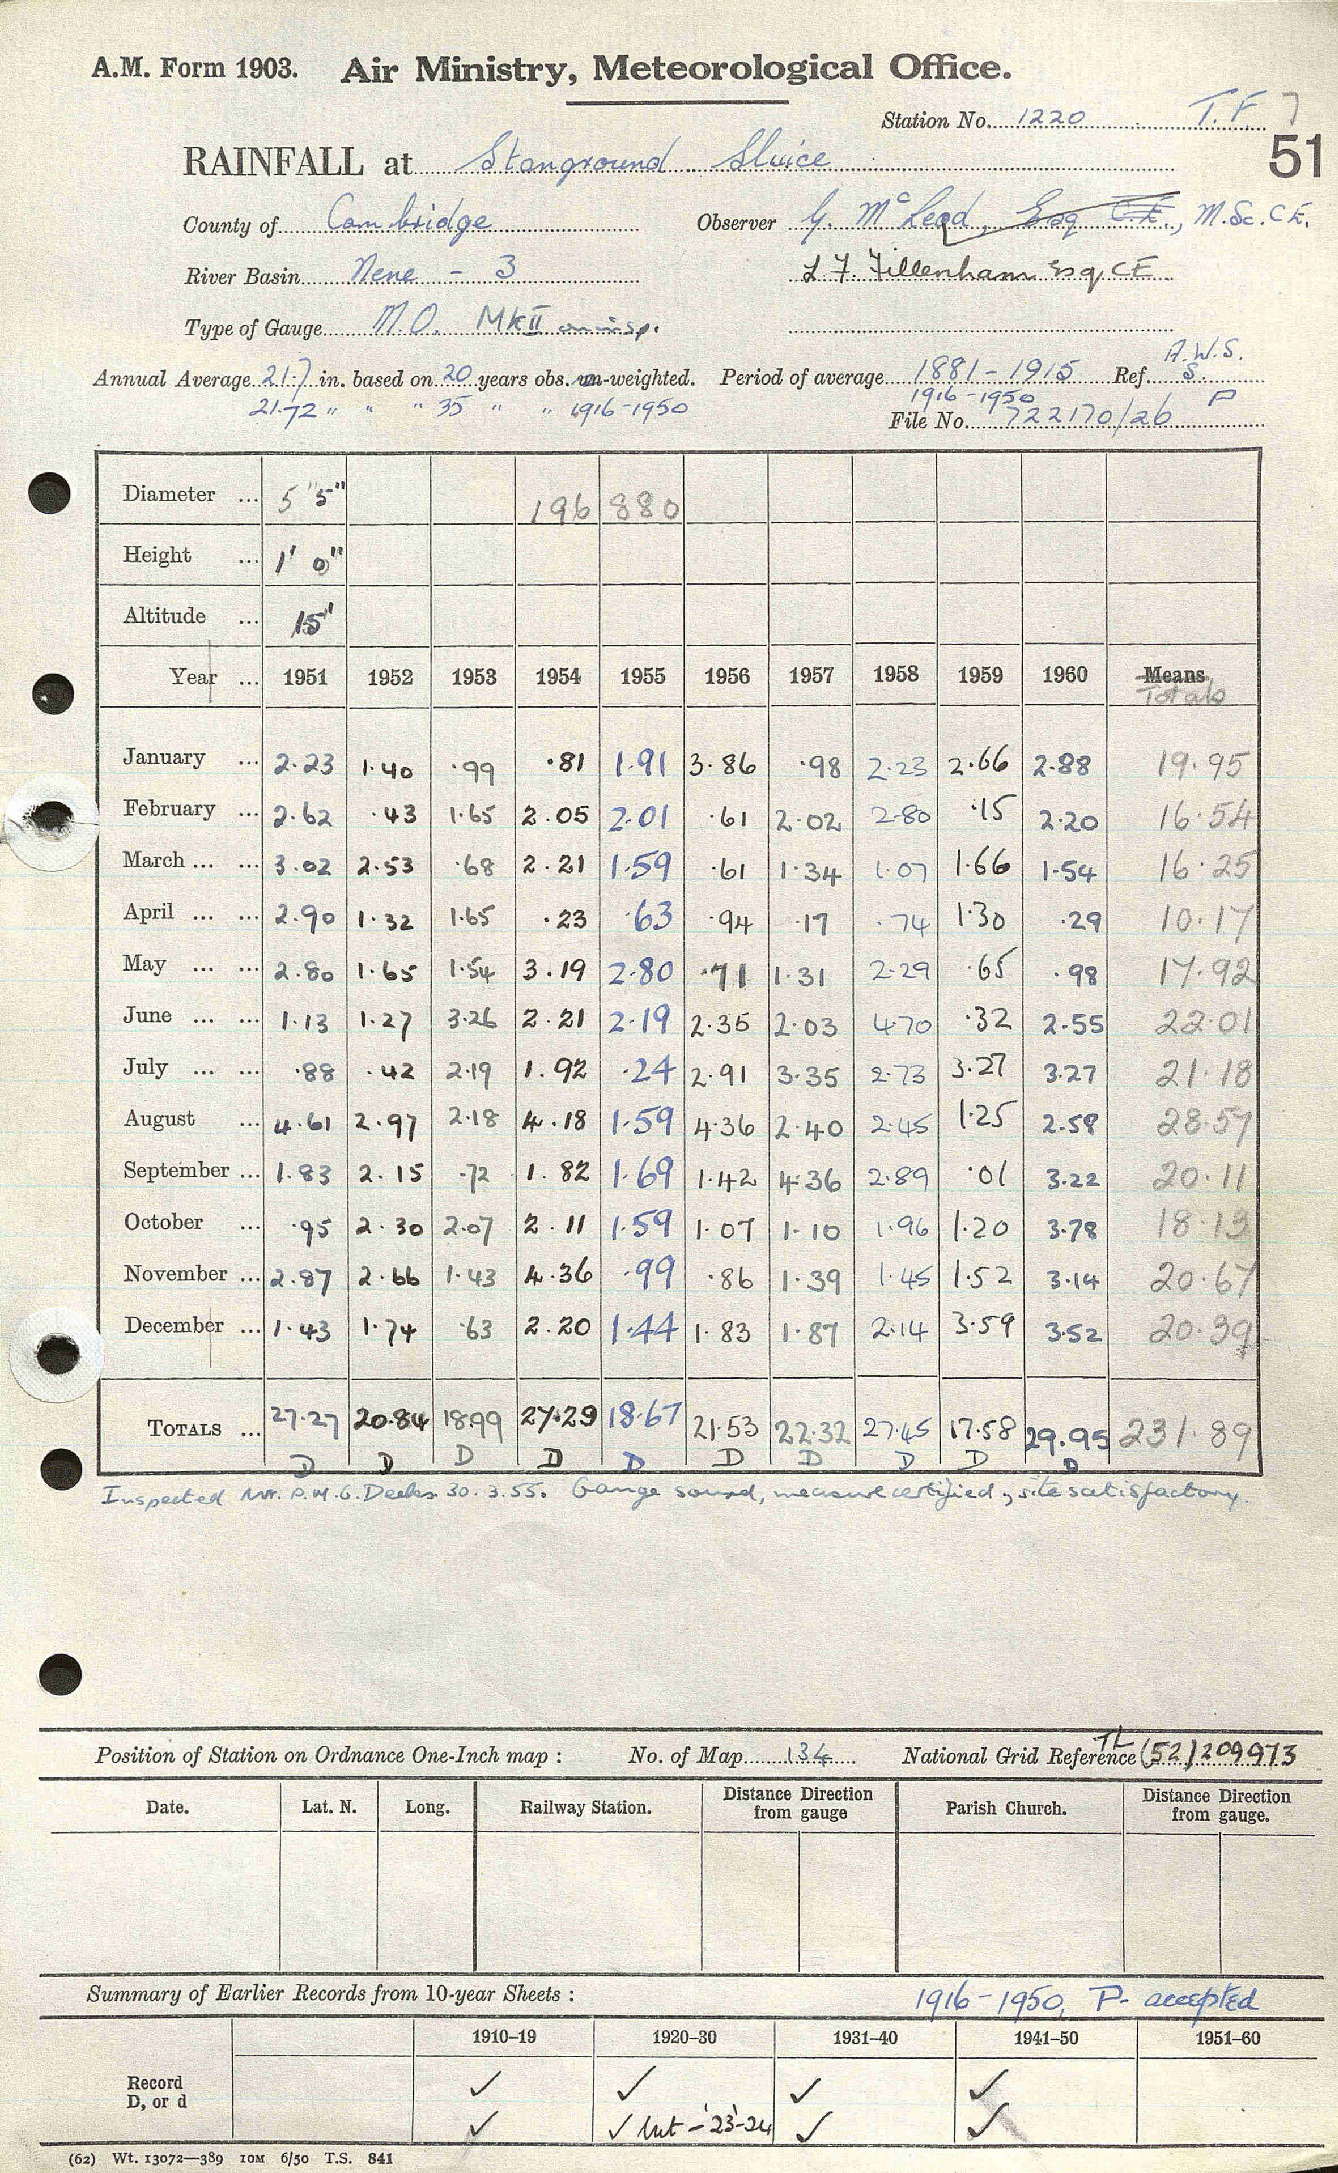 A.M. Form 1903. Air Ministry, Meteorological Office.
Station No. 1220 T.F 7
51
RAINFALL at Stanground Sluice
County of Cambridge Observer G. McLeod, Esq CE, M.Sc. CE.
River Basin Nene - 3 L F. Fillenham Esq CE
Type of Gauge M.O. MKII
Annual Average 21.7 in. based on 20 years obs. un-weighted. Period of average 1881-1915 Ref. A.W.S. S.
21.72 " " " 35 " " 1916-1950 1916-1950 P
File No. 722170/26
Diameter ... 5" 5" 196 880
Height ... 1' 0"
Altitude ... 15'
Year ... 1951 1952 1953 1954 1955 1956 1957 1958 1959 1960 Means
Totals
January ... 2.23 1.40 .99 .81 1.91 3.86 .98 2.23 2.66 2.88 19.95
February ... 2.62 .43 1.65 2.05 2.01 .61 2.02 2.80 .15 2.20 16.54
March ... ... 3.02 2.53 .68 2.21 1.59 .61 1.34 1.07 1.66 1.54 16.25
April ... ... 2.90 1.32 1.65 .23 .63 .94 .17 .74 1.30 .29 10.17
May ... ... 2.80 1.65 1.54 3.19 2.80 .71 1.31 2.29 .65 .98 17.92
June ... ... 1.13 1.27 3.26 2.21 2.19 2.35 2.03 4.70 .32 2.55 22.01
July ... ... .88 .42 2.19 1.92 .24 2.91 3.35 2.73 3.27 3.27 21.18
August ... 4.61 2.97 2.18 4.18 1.59 4.36 2.40 2.45 1.25 2.58 28.57
September ... 1.83 2.15 .72 1.82 1.69 1.42 4.36 2.89 .01 3.22 20.11
October ... .95 2.30 2.07 2.11 1.59 1.07 1.10 1.96 1.20 3.78 18.13
November ... 2.87 2.66 1.43 4.36 .99 .86 1.39 1.45 1.52 3.14 20.67
December ... 1.43 1.74 .63 2.20 1.44 1.83 1.87 2.14 3.59 3.52 20.39
TOTALS ... 27.27 20.84 18.99 27.29 18.67 21.53 22.32 27.45 17.58 29.95 231.89
D D D D D D D D D D
Inspected Mr. P.M.G. Deeks 30.3.55. Gauge sound, measure certified, site satisfactory.
Position of Station on Ordnance One-Inch map : No. of Map 134 National Grid Reference TL (52) 209973
Date. Lat. N. Long. Railway Station. Distance Direction from gauge Parish Church. Distance Direction from gauge.
Summary of Earlier Records from 10-year Sheets : 1916-1950, P- accepted
1910–19 1920–30 1931–40 1941–50 1951–60
Record ✓ ✓ ✓ ✓
D, or d ✓ ✓ but -'23-24 ✓ ✓
(62) Wt. 13072—389 10M 6/50 T.S. 841